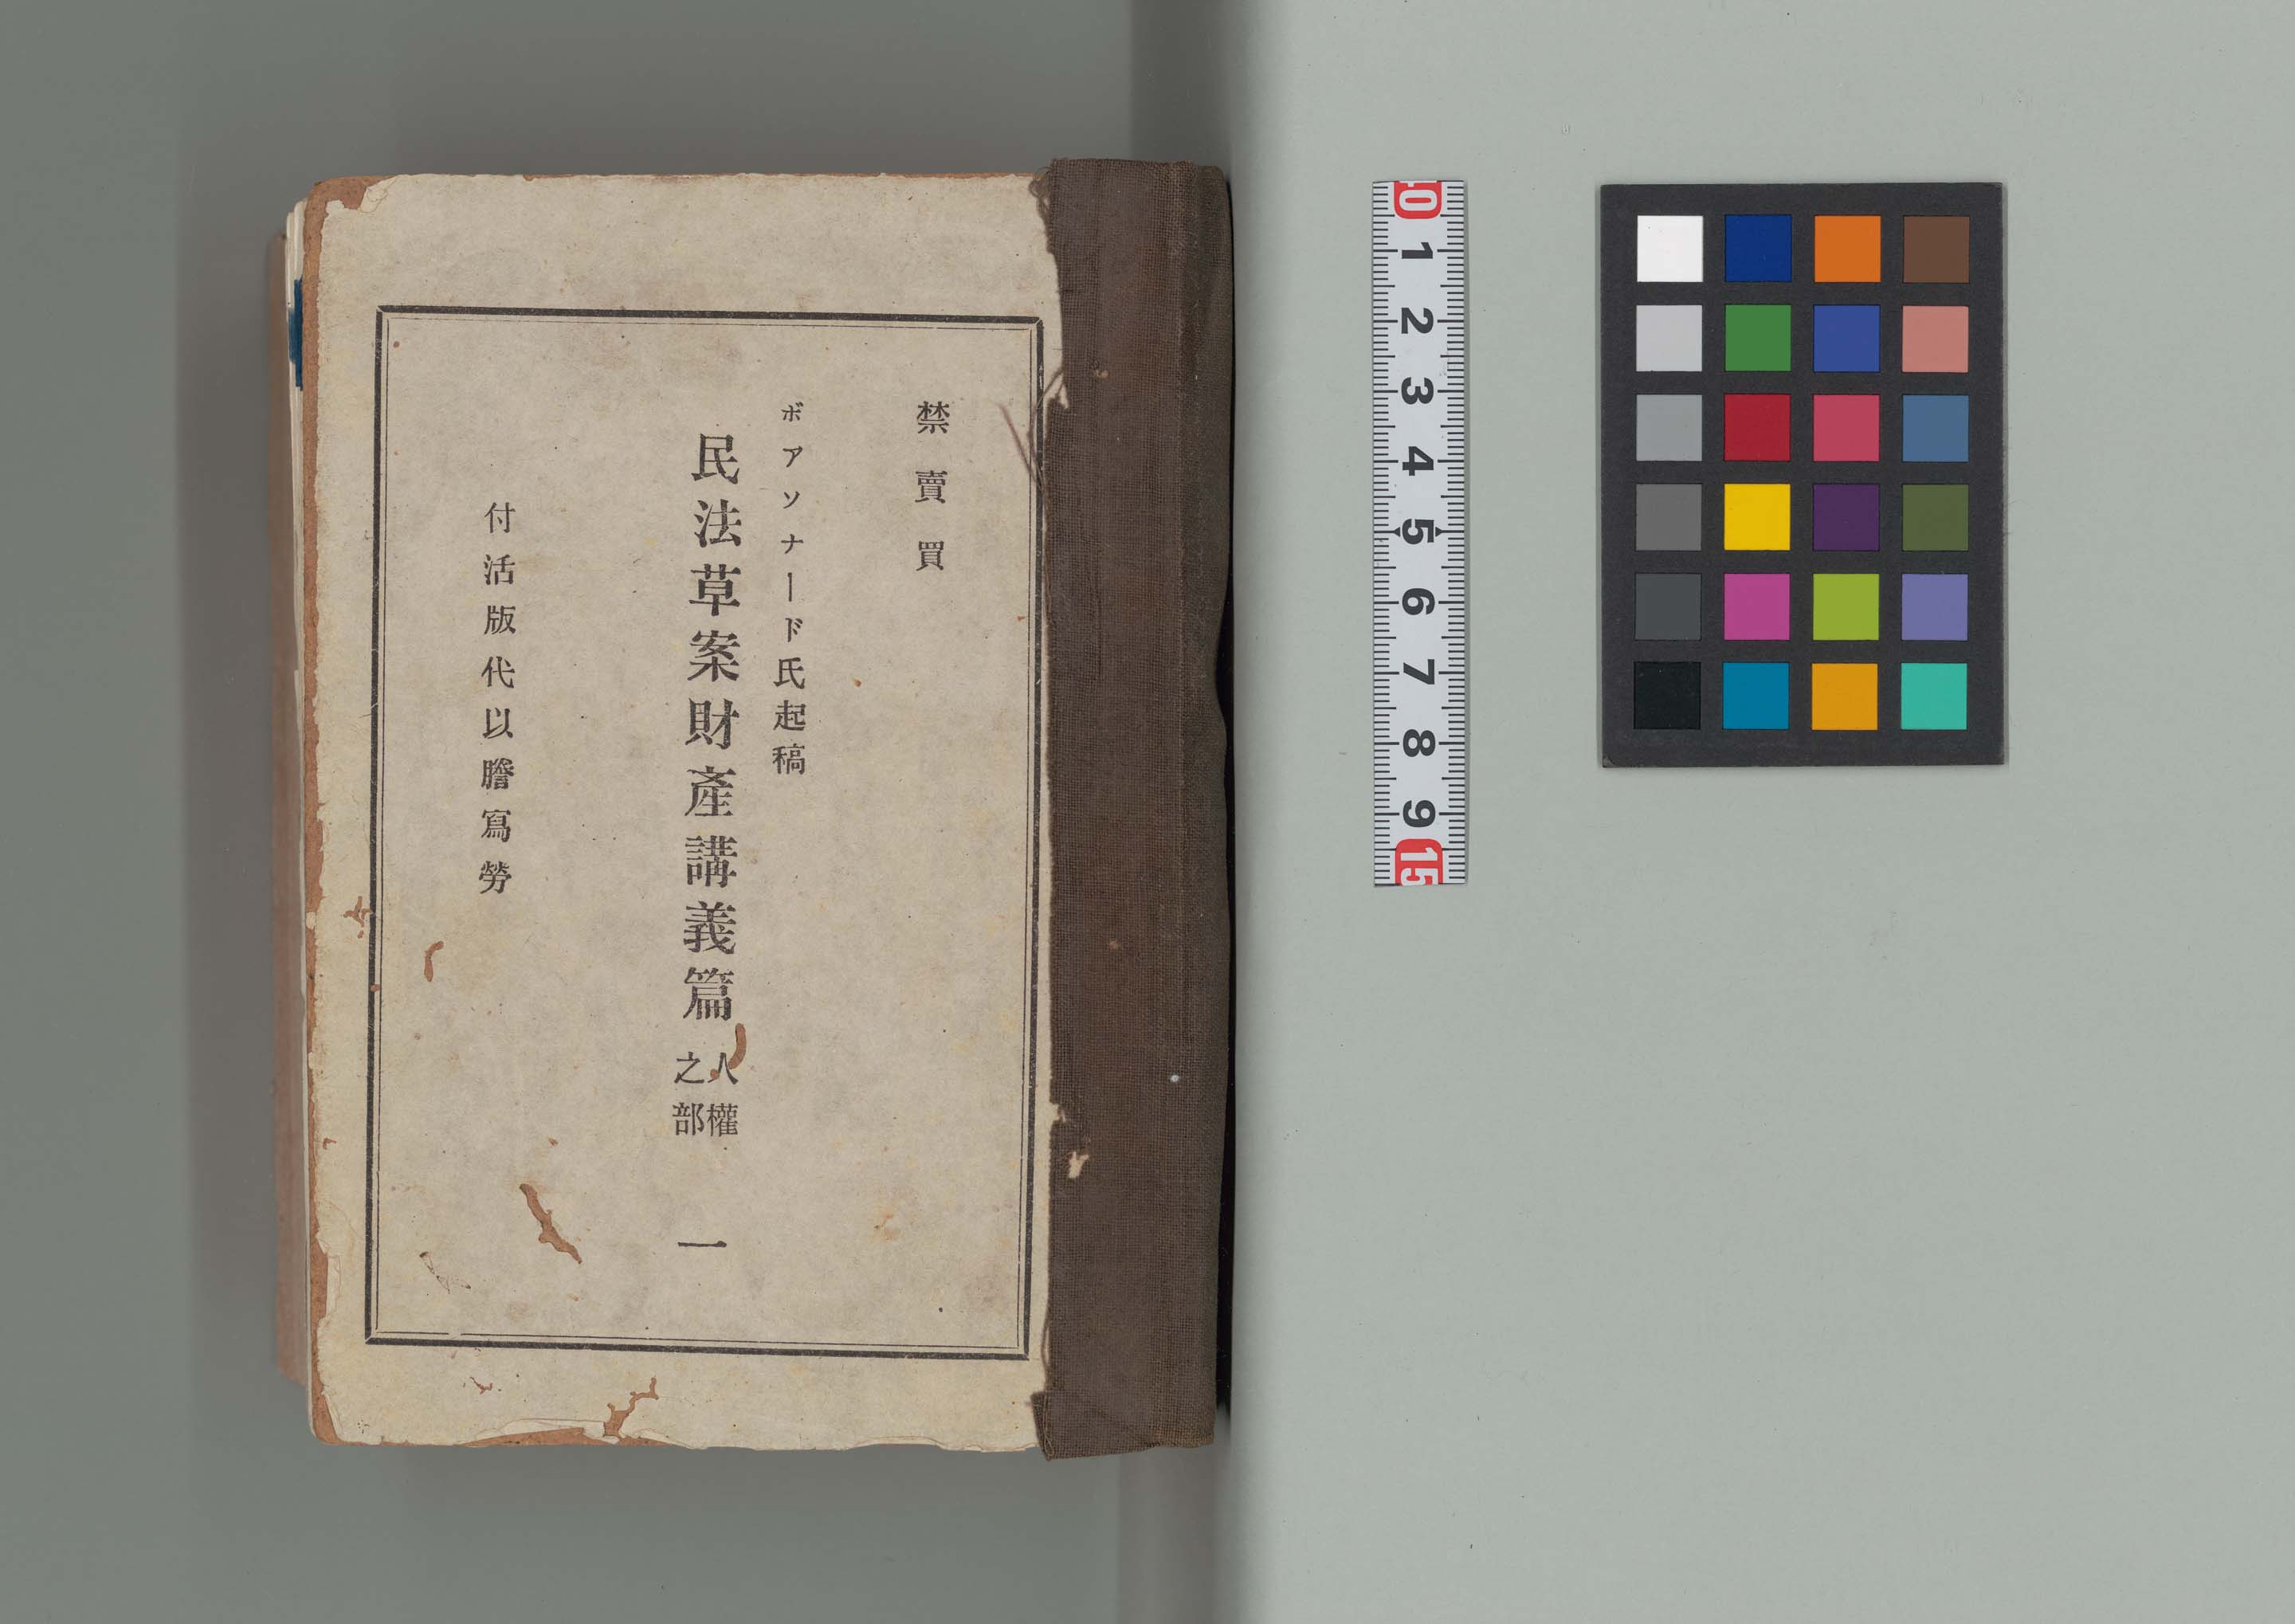 禁賣買
ボアソナード氏起稿
民法草案財產講義篇 人權之部 一
付活版代以謄寫勞
10 1 2 3 4 5 6 7 8 9 15